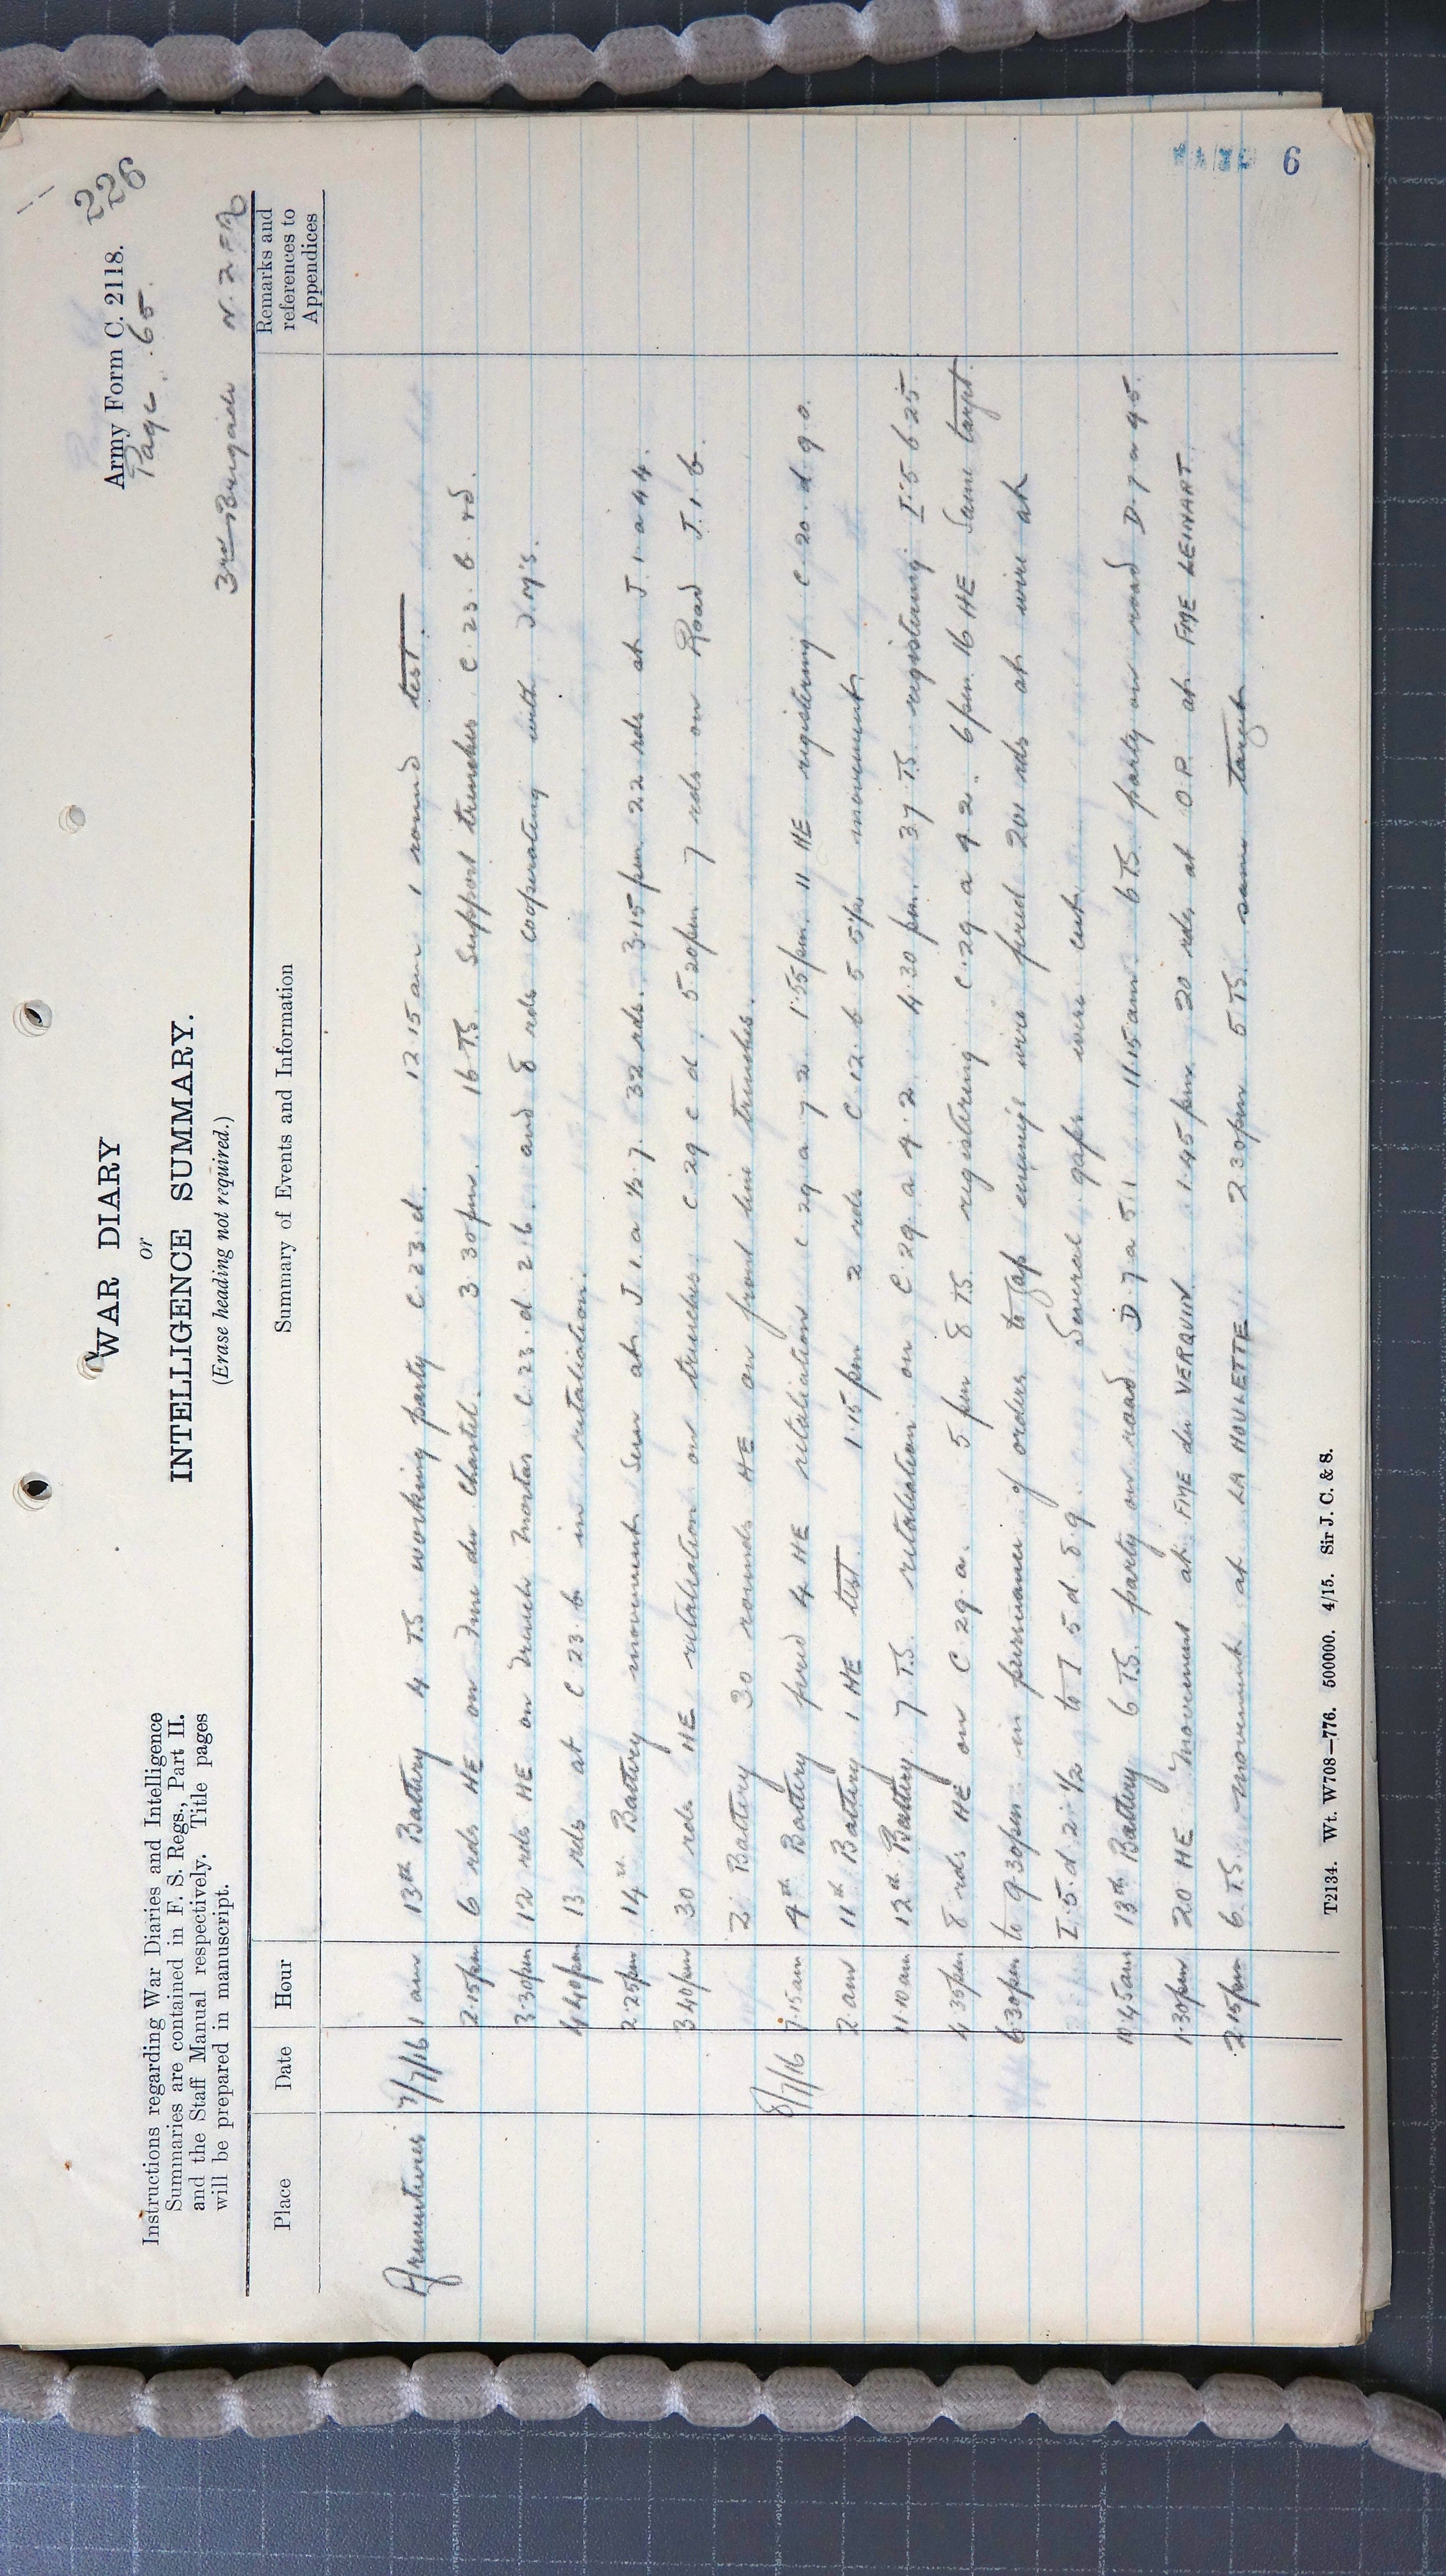 226
Army Form C. 2118.
Page 65.
WAR DIARY
or
INTELLIGENCE SUMMARY.
(Erase heading not required.)
Instructions regarding War Diaries and Intelligence
Summaries are contained in F. S. Regs., Part II.
and the Staff Manual respectively. Title pages
will be prepared in manuscript.
3rd Brigade N.Z.F.A
Place Date Hour Summary of Events and Information Remarks and references to Appendices
Armentieres 7/7/16 1 am 13th Battery 4 T.S working party C.23.d. 12.15 am 1 round test.
2.15pm 6 rds HE on Fme du Chastel. 3.30pm. 16 T.S. Support trenches C.23.b.
3.30pm 12 rds HE on Trench Mortar C.23.d.2.6. and 8 rds cooperating with T.M's.
4.40pm 13 rds at C 23.b in retaliation.
2.25pm 14th Battery movement seen at J.1.a.½.7. 32 rds. 3.15pm 22 rds at J.1.a 44.
3.40pm 30 rds HE retaliation on trenches. C.29 c d. 5 20pm 7 rds on Road J.1 b.
2 Battery 30 rounds HE on front line trenches.
8/7/16 7.15am 4th Battery fired 4 HE retaliation C 29 a 7 2. 1.55pm. 11 HE registering C 20.d.9 0.
2 am 11th Battery 1 HE test. 1.15pm 2 rds C.12.b 5 5½ movement
11.10am 12th Battery. 7 T.S. retaliation on C.29.a 9.2. 4.30 pm. 37 T.S. registering I.5 b 25
4.35pm 8 rds HE on C 29.a. 5 pm 8 T.S. registering C.29 a 9 2. 6pm. 16 HE same target.
6.30pm to 9.30pm in pursuance of orders to gap enemy's wire fired 201 rds at wire at
I.5.d.2.½ to I 5 d 8.9. Several gaps were cut.
10.45am 13th Battery 6 T.S. party on road D.7 a 5.1 11.15am. 6 T.S. party on road D.7 a 95.
1.30pm 20 HE movement at FME du VERQUIN. 1.45pm 20 rds at O.P. at FME LEINART.
2.15pm 6 T.S. movement at LA HOULETTE 2 30pm 5 T.S. same target
T2134. Wt. W708—776. 500000. 4/15. Sir J. C. & S.
6